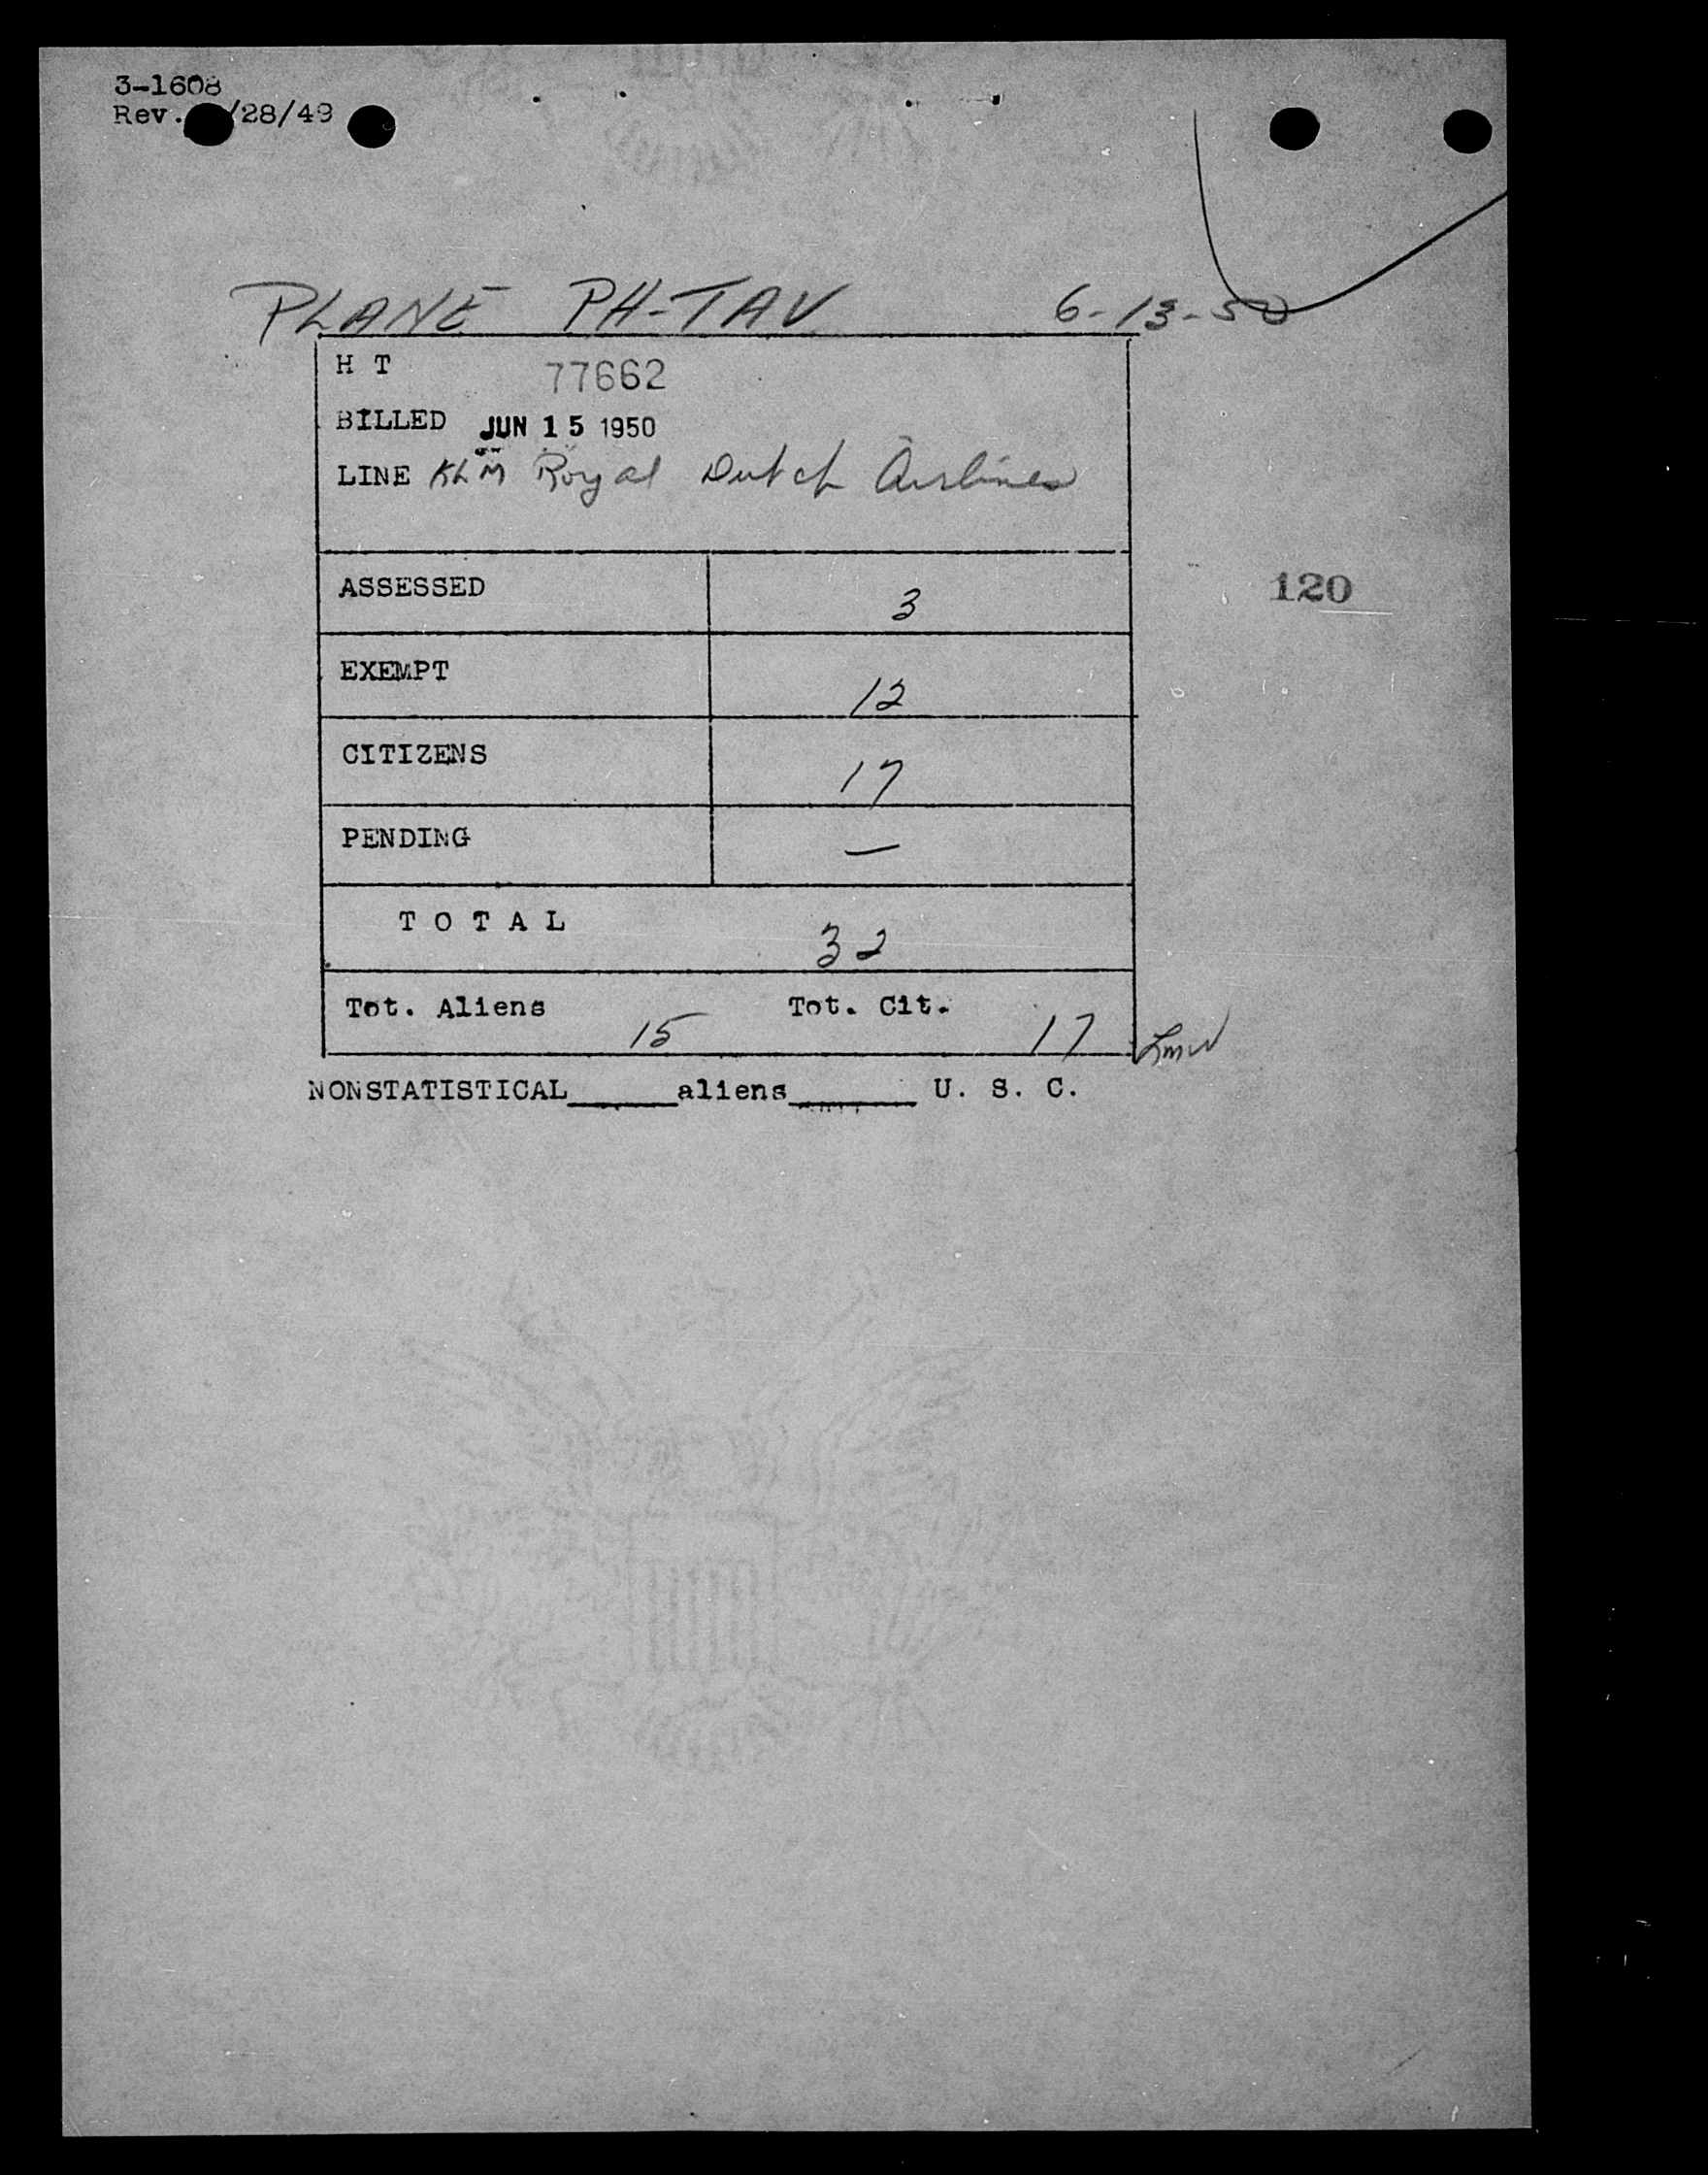 3-1608
Rev. /28/49
PLANE PH-TAV 6-13-50
H T 77662
BILLED JUN 15 1950
LINE KLM Royal Dutch Airlines
ASSESSED 3
120
EXEMPT 12
CITIZENS 17
PENDING —
T O T A L 32
Tot. Aliens 15 Tot. Cit. 17
NONSTATISTICAL______aliens_______ U. S. C.